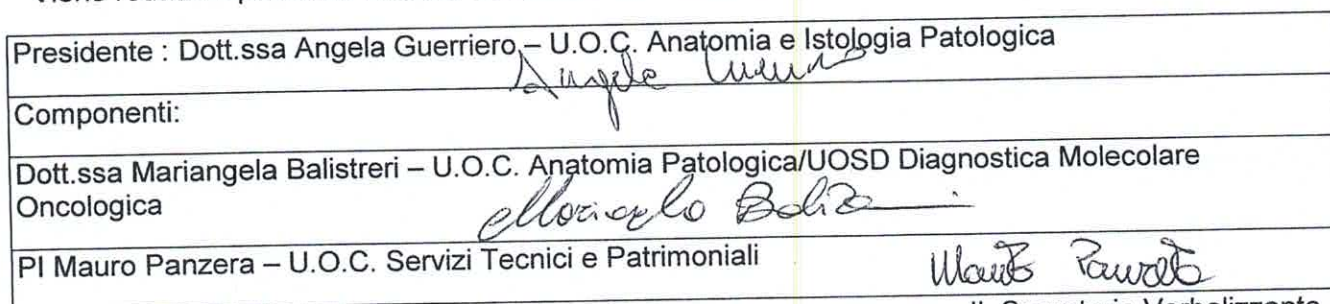 Presidente : Dott.ssa Angela Guerriero – U.O.C. Anatomia e Istologia Patologica
Angela Guerriero
Componenti:
Dott.ssa Mariangela Balistreri – U.O.C. Anatomia Patologica/UOSD Diagnostica Molecolare
Oncologica
PI Mauro Panzera – U.O.C. Servizi Tecnici e Patrimoniali
Segretario Verbalizzante